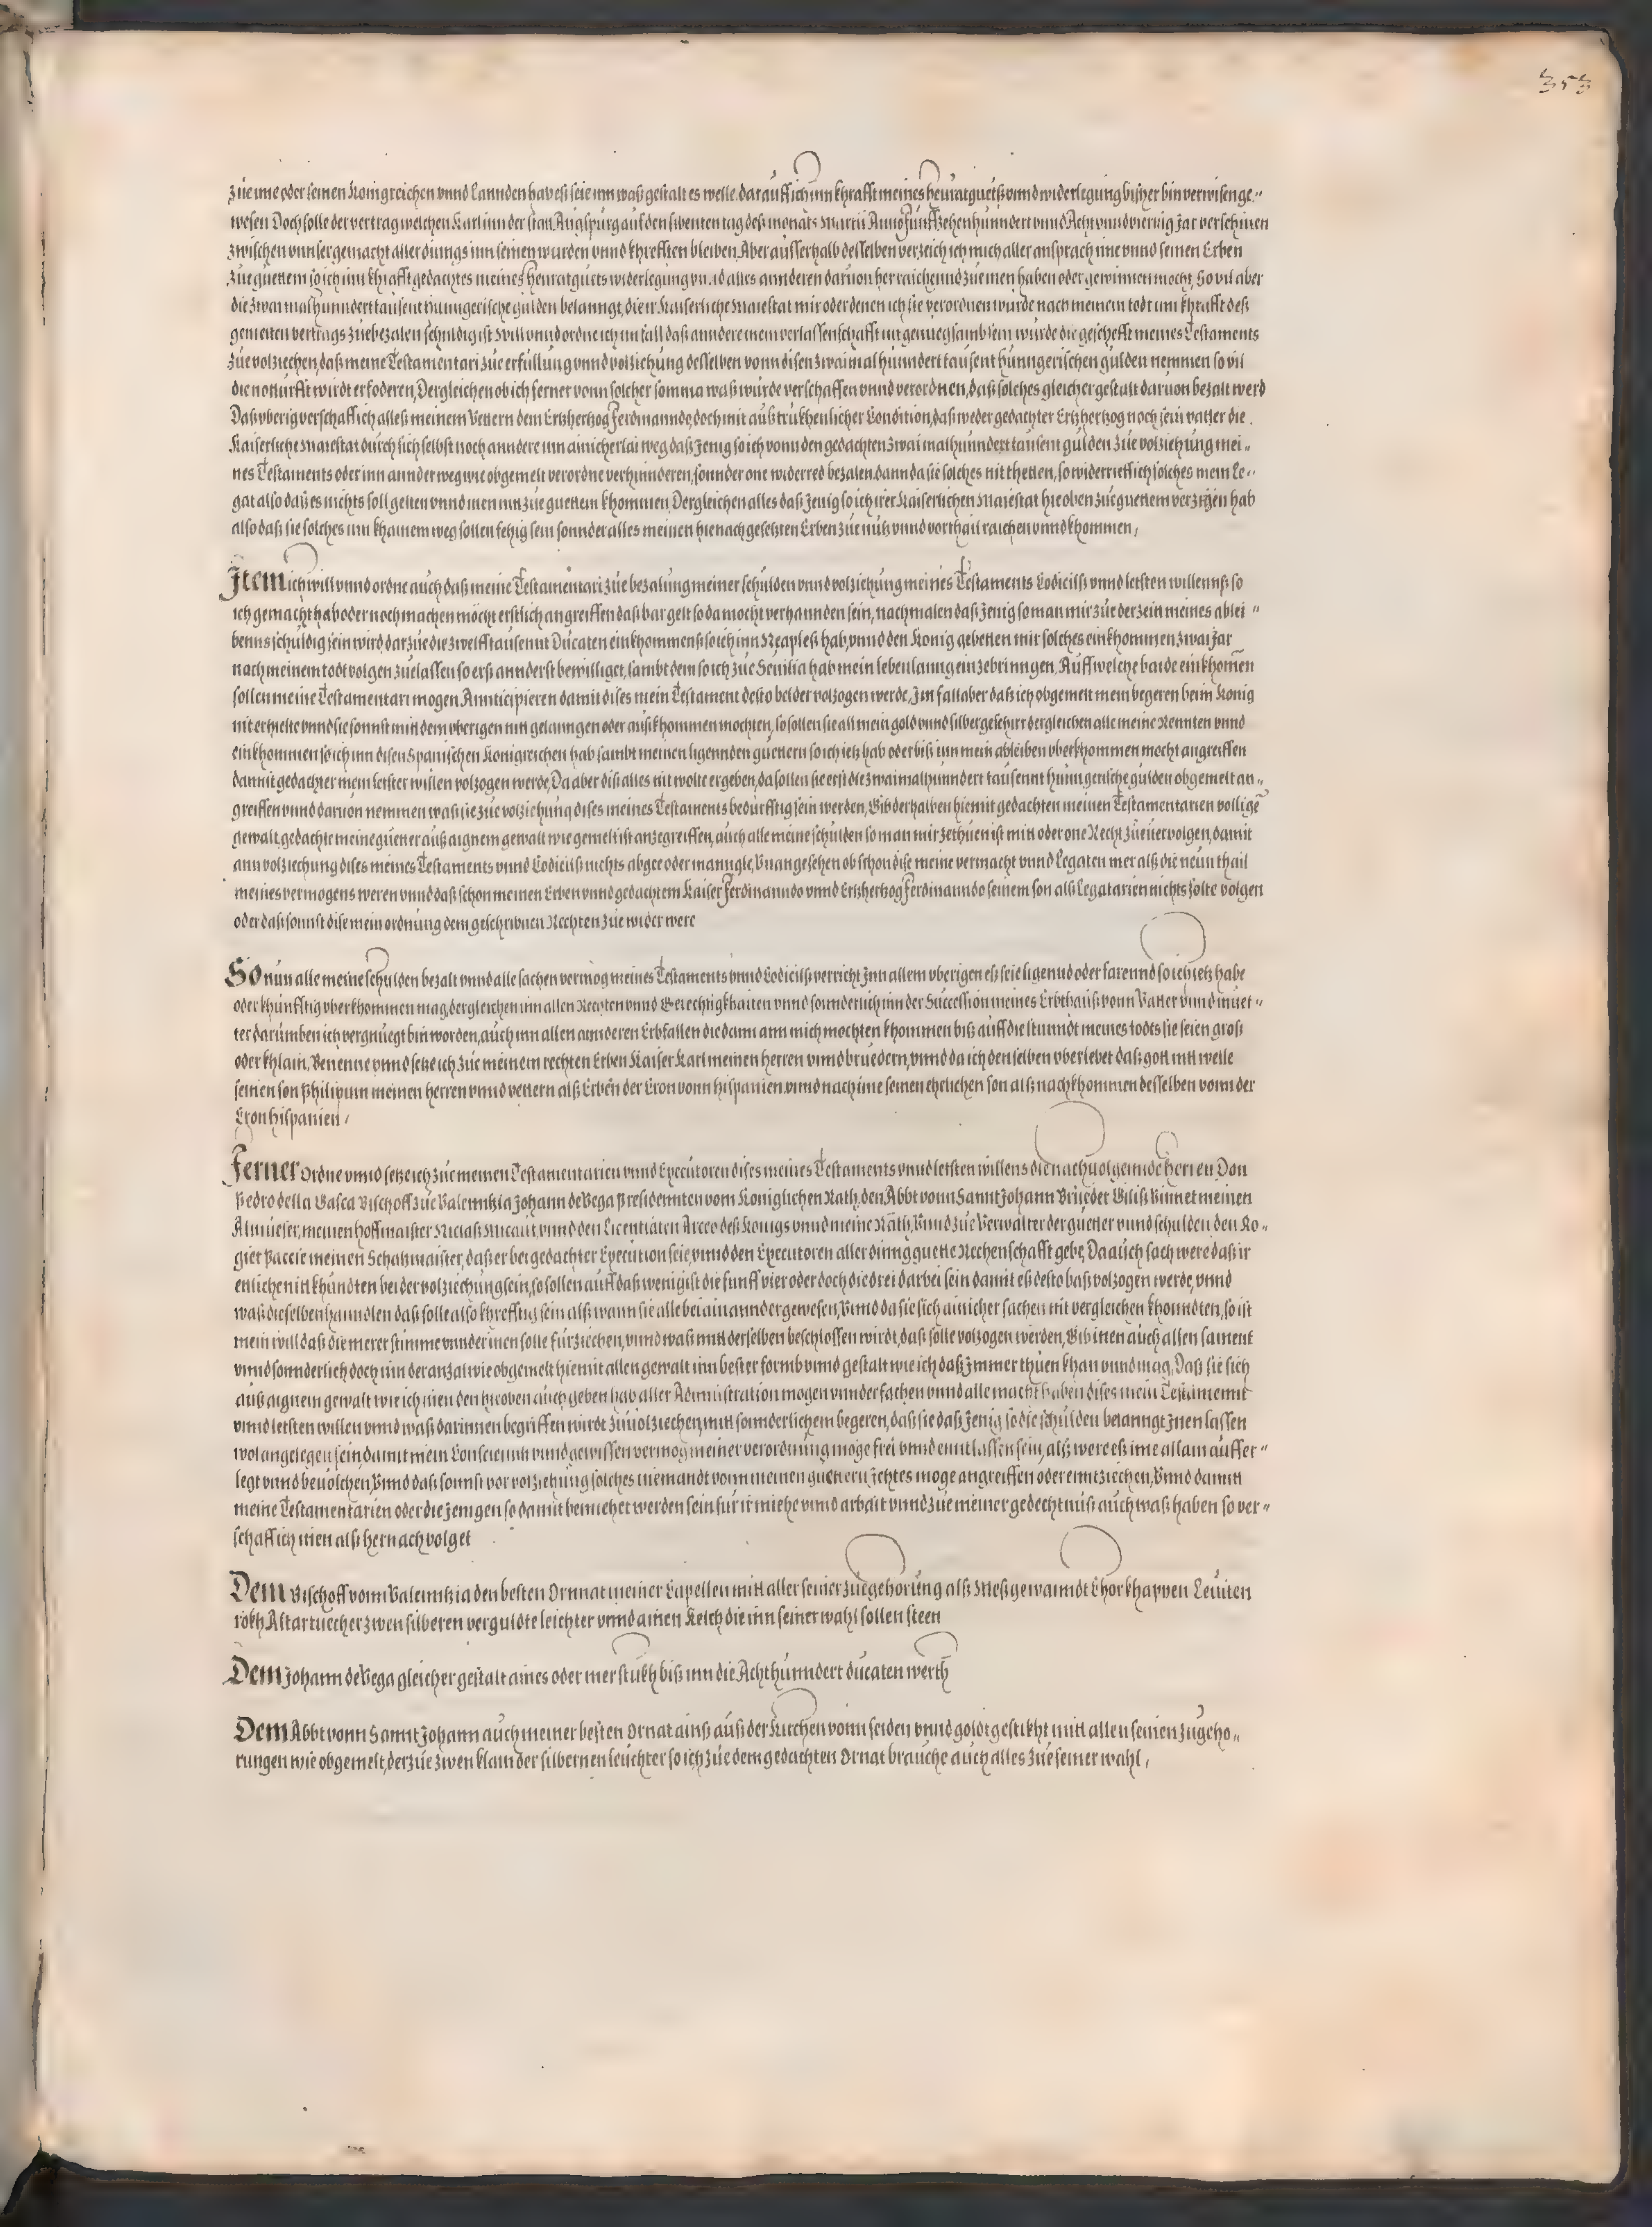 353
Zue ime oder seinen Konigreichen vnnd Lannden hab eß seie inn waß gestalt es welle. darauff ich inn khrafft meines heuratguetß vnnd widerlegung bißher bin verwisen ge-
wesen Doch solle der vertrag welchen Karl inn der stat Augspurg auf den sibenten tag deß monats Martii Anno funffzehenhunndert vnnd Acht vnnd viertzig Jar verschinen
zwischen vnns er gemacht aller dinngs inn seinen wurden vnnd khrefften bleiben, Aber ausserhalb desselben verzeich ich mich aller ansprach ime vnnd seinen Erben
zue guettem so ich inn khrafft gedachtes meines heuratguets widerlegung vnnd alles annderen daruon herraichennd zue inen haben oder gewinnen mocht, So vil aber
die zwaimalhunndert tausent hunngerische gulden belanngt, die ir Kaiserliche Maiestat mir oder denen ich sie verordnen wurde nach meinem todt inn khrafft deß
gemelten vertrags zuebezalen schuldig ist Will vnnd ordne ich im fall daß anndere mein verlassenschafft nit genuegsamb sein wurde die geschefft meines Testaments
zue volziechen, daß meine Testamentari zue erfullung vnnd volziehung desselben vonn disen zwaimalhunndert tausent hunngerischen gulden nemmen so vil
die notturfft wirdt erfoderen, Dergleichen ob ich ferner vonn solcher somma waß wurde verschaffen vnnd verordnen, daß solches gleicher gestalt daruon bezalt werd
Daß vberig verschaff ich alleß meinem Vettern dem Ertzhertzog Ferdinanndo, doch mit außtrukhenlicher Condition, daß weder gedachter Ertzhertzog noch sein vatter die
Kaiserliche Maiestat durch sich selbst noch anndere inn ainicherlai weg daß Jenig so ich vonn den gedachten zwaimalhunndert tausent gulden zue volziehung mei-
nes Testaments oder inn annder weg wie obgemelt verordne verhinnderen, sonnder one widerred bezalen. dann da sie solches nit thetten, so widerrieff ich solches mein Le-
gat also daß es nichts soll gelten vnnd inen nit zue guettem khommen, Dergleichen alles daß Jenig so ich irer Kaiserlichen Maiestat hieoben zue guettem verzigen hab
also daß sie solches inn khainem weg sollen fehig sein sonnder alles meinen hienach gesetzten Erben zue nutz vnnd vorthail raichen vnnd khommen,
Item ich will vnnd ordne auch daß meine Testamentari zue bezalung meiner schulden vnnd volziehung meines Testaments Codicilß vnnd letsten willennß so
ich gemacht hab oder noch machen mocht erstlich angreiffen daß bar gelt so da mocht verhannden sein, nachmalen daß Jenig so man mir zue der zeit meines ablei-
benns schuldig sein wird darzue die zwelfftausennt Ducaten einkhommenß so ich inn Neapleß hab, vnnd den Konig gebetten mir solches einkhommen zwai Jar
nach meinem todt volgen zuelassen so erß annderst bewilliget, sambt dem so ich zue Seuilia hab mein lebenlanng einzebrinngen. Auff welche baide einkhomen
sollen meine Testamentari mogen Annticipieren damit dises mein Testament desto belder volzogen werde, Im fall aber daß ich obgemelt mein begeren beim Konig
nit erhielte vnnd sie sonnst mit dem vberigen nit gelanngen oder außkhommen mochten, so sollen sie all mein gold vnnd silbergeschirr dergleichen alle meine Rennten vnnd
einkhommen so ich inn disen Spanischen Konigreichen hab sambt meinen ligennden guettern so ich ietz hab oder biß inn mein ableiben vberkhommen mocht angreiffen
damit gedachter mein letster willen volzogen werde, Da aber diß alles nit wolte ergeben, da sollen sie erst die zwaimalhunndert tausennt hunngerische gulden obgemelt an-
greiffen vnnd daruon nemmen waß sie zue volziehung dises meines Testaments bedurfftig sein werden, Gib derhalben hiemit gedachten meinen Testamentarien vollige
gewalt, gedachte meine guetter auß aignem gewalt wie gemelt ist anzegreiffen, auch alle meine schulden so man mir zethuen ist mit oder one Recht zue uervolgen, damit
ann volziechung dises meines Testaments vnnd Codicilß nichts abgee oder manngle, Vnangesehen ob schon dise meine vermacht vnnd Legaten mer alß die neun thail
meines vermogens weren vnnd daß schon meinen Erben vnnd gedachtem Kaiser Ferdinanndo vnnd Ertzhertzog Ferdinanndo seinem son alß Legatarien nichts solte volgen
oder daß sonnst dise mein ordnung dem geschribnen Rechten zue wider were
So nun alle meine schulden bezalt vnnd alle sachen vermog meines Testaments vnnd Codicilß verricht Inn allem vberigen eß seie ligennd oder farennd so ich ietz habe
oder khunfftig vberkhommen mag, dergleichen inn allen Rechten vnnd Gerechtigkhaiten vnnd sonnderlich inn der Succession meines Erbthailß vonn Vatter vnnd muet-
ter darumben ich vergnuegt bin worden, auch inn allen annderen Erbfallen die dann ann mich mochten khommen biß auff die stunndt meines todts sie seien groß
oder khlain, Benenne vnnd setze ich zue meinem rechten Erben Kaiser Karl meinen herren vnnd bruedern, vnnd da ich denselben vberlebet daß gott nit welle
seinen son Philippum meinen herren vnnd vettern alß Erben der Cron vonn Hispanien vnnd nach ime seinen ehelichen son alß nachkhommen desselben vonn der
Cron Hispanien,
Ferner Ordne vnnd setze ich zue meinen Testamentarien vnnd Executoren dises meines Testaments vnnd letsten willens die nachuolgennde herren Don
Pedro della Gasca Bischoff zue Valenntzia Johann de Vega Presidennten vom Koniglichen Rath, den Abbt vonn Sannt Johann Brueder Gilliß Binnet meinen
Almueser, meinen hoffmaister Niclaß Nicault, vnnd den Licentiaten Arceo deß Konigs vnnd meine Räth, Vnnd zue Verwalter der guetter vnnd schulden den Ro-
gier Paccie meinen Schatzmaister, daß er bei gedachter Execution seie, vnnd den Executoren aller dinng guette Rechenschafft gebe, Da auch sach were daß ir
etlichen nit khundten bei der volziechung sein, so sollen auff daß wenigist die funff vier oder doch die drei darbei sein damit eß desto baß volzogen werde, vnnd
waß dieselben hanndlen daß solle also khrefftig sein alß wann sie alle bei ainannder gewesen, Vnnd da sie sich ainicher sachen nit vergleichen khonndten, so ist
mein will daß die merer stimme vnnder inen solle furziechen, vnnd waß mit derselben beschlossen wirdt, daß solle volzogen werden, Gib inen auch allen sament
vnnd sonnderlich doch inn der anzal wie obgemelt hiemit allen gewalt inn bester formb vnnd gestalt wie ich daß Immer thuen khan vnnd mag, Daß sie sich
auß aignem gewalt wie ich inen den hieoben auch geben hab aller Administration mogen vnnderfachen vnnd alle macht haben dises mein Testamennt
vnnd letsten willen vnnd waß darinnen begriffen wirdt zuuolziechen, mit sonnderlichem begeren, daß sie daß Jenig so die schulden belanngt Inen lassen
wol angelegen sein, damit mein Conscienntz vnnd gewissen vermog meiner verordnung moge frei vnnd enntlassen sein, alß were eß ime allain auffer-
legt vnnd beuolchen, Vnnd daß sonnst vor volziehung solches niemandt vonn meinen guettern Ichtes moge angreiffen oder enntziechen, Vnnd damit
meine Testamentarien oder die Jenigen so damit bemiehet werden sein fur ir miehe vnnd arbait vnnd zue meiner gedechtnuß auch waß haben so ver-
schaff ich inen alß hernach volget
Dem Bischoff vonn Valenntzia den besten Ornnat meiner Capellen mit aller seiner zuegehorung alß Meßgewanndt Chorkhappen Leuiten
rökh Altartuecher zwen silberen verguldte leichter vnnd ainen Kelch die inn seiner wahl sollen steen
Dem Johann de Vega gleicher gestalt aines oder mer stukh biß inn die Achthunndert ducaten werth
Dem Abbt vonn Sannt Johann auch meiner besten Ornat ainß auß der Kirchen vonn seiden vnnd goldt gestikht mit allen seinen zugeho-
rungen wie obgemelt, derzue zwen klain der silbernen leuchter so ich zue dem gedachten Ornat brauche auch alles zue seiner wahl,